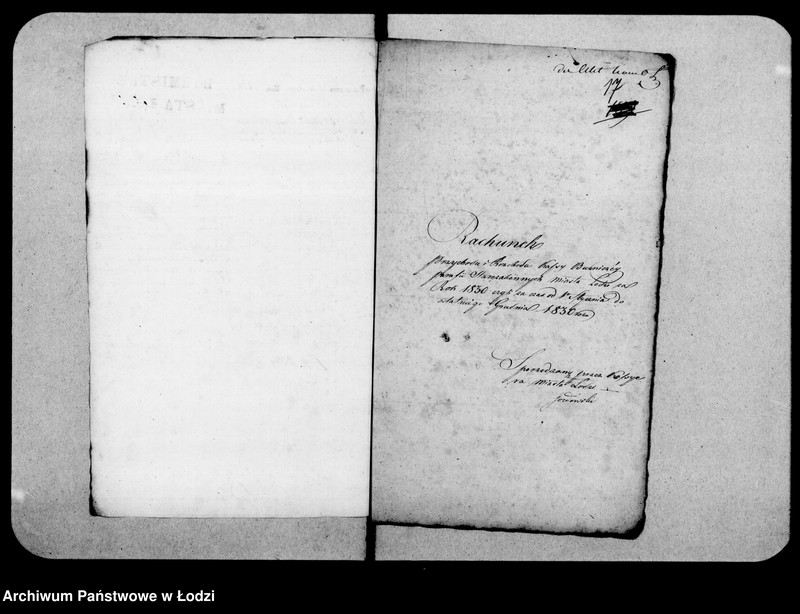 17
Rachunek
Przychodu i Rozchodu Kassy Bożniczey
Starozakonnych Miasta Łodzi za
Rok 1830 czyli za czas od 1º Stycznia do
ostatniego Grudnia 1830 roku
Sporządzony przez Kassyę
ra Miasta Łodzi
Archiwum Państwowe w Łodzi